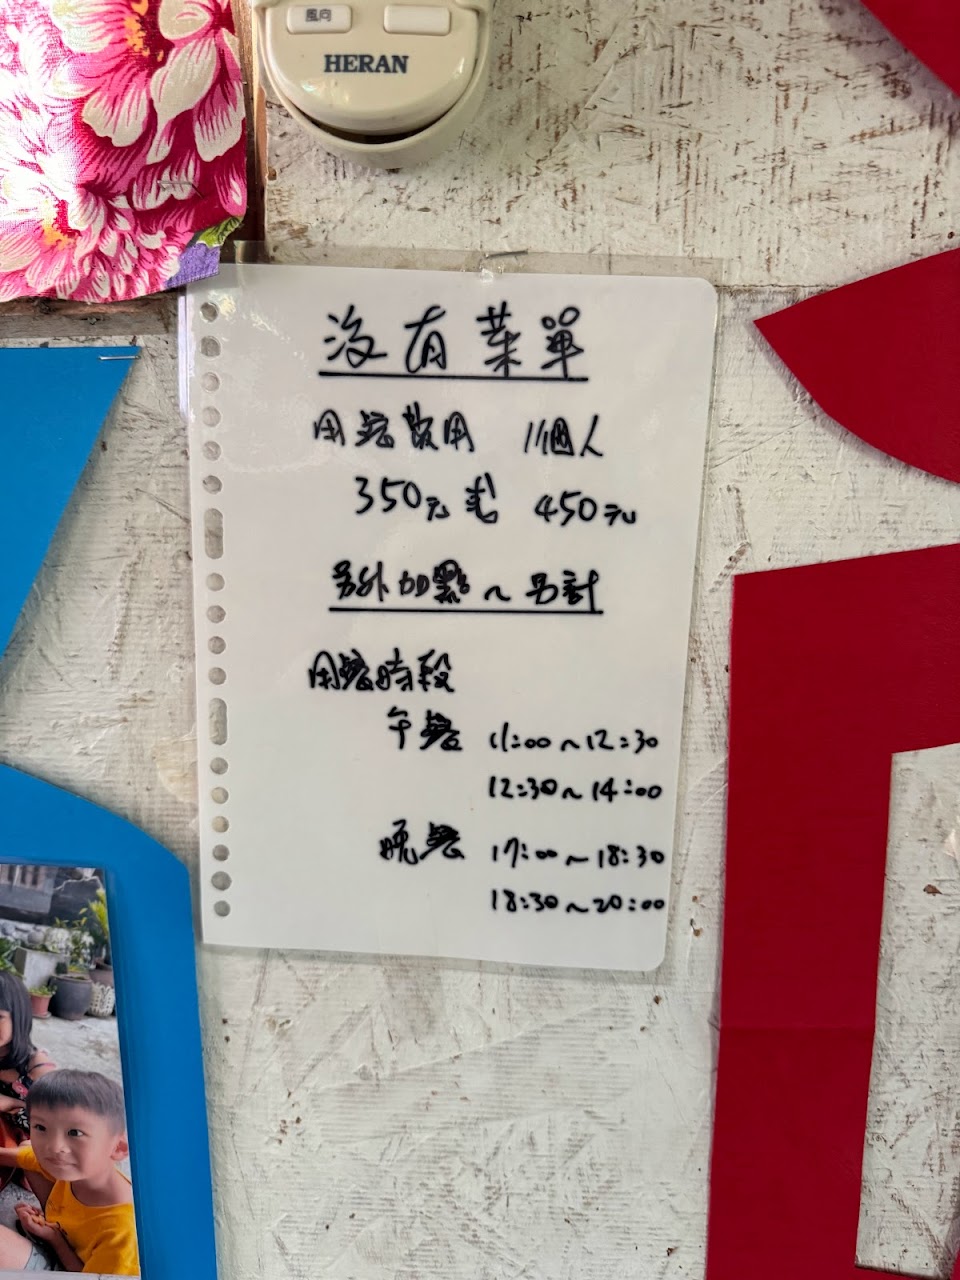 風向
HERAN
沒有菜單
用餐費用 1個人
350元或 450元
另外加點~另計
用餐時段
午餐 11:00~12:30
12:30~14:00
晚餐 17:00~18:30
18:30~20:00